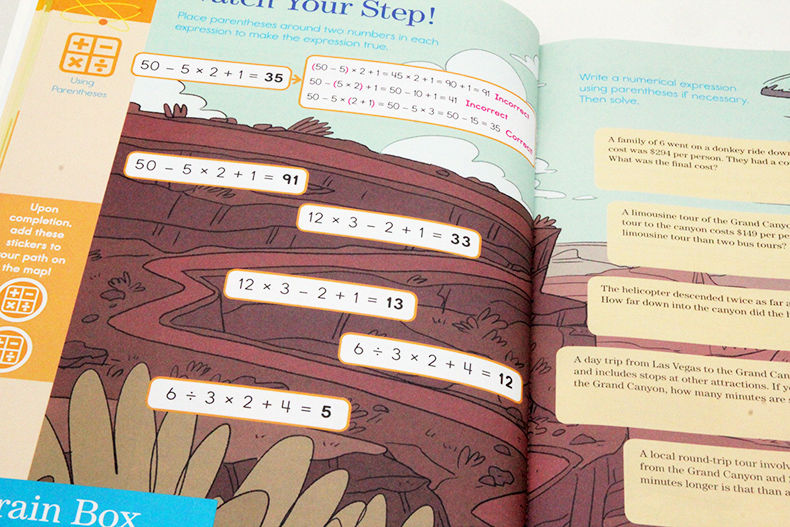 Your Step!
Place parentheses around two numbers in each
expression to make the expression true.
Using
Parentheses
50 – 5 × 2 + 1 = 35
(50 – 5) × 2 + 1 = 45 × 2 + 1 = 90 + 1 = 91 Incorrect
50 – (5 × 2) + 1 = 50 – 10 + 1 = 41 Incorrect
50 – 5 × (2 + 1) = 50 – 5 × 3 = 50 – 15 = 35 Correct
50 – 5 × 2 + 1 = 91
12 × 3 – 2 + 1 = 33
12 × 3 – 2 + 1 = 13
6 ÷ 3 × 2 + 4 = 12
6 ÷ 3 × 2 + 4 = 5
Upon
completion,
add these
stickers to
your path on
the map!
rain Box
Write a numerical expression
using parentheses if necessary.
Then solve.
A family of 6 went on a donkey ride down
cost was $294 per person. They had a co
What was the final cost?
A limousine tour of the Grand Canyo
tour to the canyon costs $149 per pe
limousine tour than two bus tours?
The helicopter descended twice as far a
How far down into the canyon did the h
A day trip from Las Vegas to the Grand Can
and includes stops at other attractions. If y
the Grand Canyon, how many minutes are s
A local round-trip tour involv
from the Grand Canyon and
minutes longer is that than a